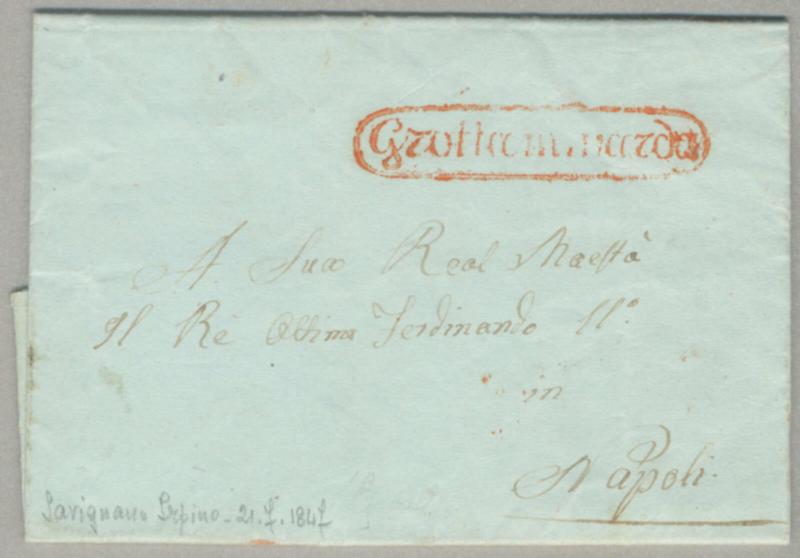 Grottaminarda
A Sua Real Maestà
Il Rè Ottimo Ferdinando II°
in
Napoli
Savignano Irpino - 21.7.1847